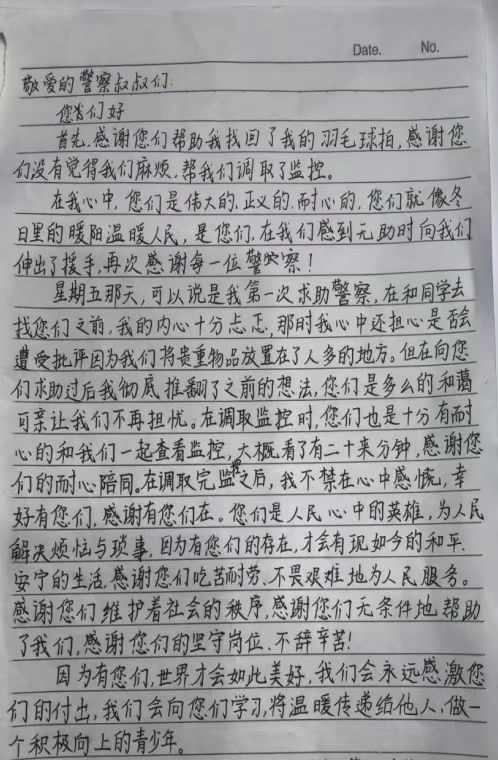 Date. No.
敬爱的警察叔叔们:
您们好
首先,感谢您们帮助我找回了我的羽毛球拍,感谢您
们没有觉得我们麻烦,帮我们调取了监控。
在我心中,您们是伟大的,正义的,耐心的,您们就像冬
日里的暖阳温暖人民,是您们,在我们感到无助时向我们
伸出了援手,再次感谢每一位警察!
星期五那天,可以说是我第一次求助警察,在和同学去
找您们之前,我的内心十分忐忑,那时我心中还担心是否会
遭受批评因为我们将贵重物品放置在了人多的地方。但在向您
们求助过后我彻底推翻了之前的想法,您们是多么的和蔼
可亲让我们不再担忧。在调取监控时,您们也是十分有耐
心的和我们一起查看监控,大概看了有二十来分钟,感谢您
们的耐心陪同。在调取完监控之后,我不禁在心中感慨,幸
好有您们,感谢有您们在。您们是人民心中的英雄,为人民
解决烦恼与琐事,因为有您们的存在,才会有现如今的和平.
安宁的生活,感谢您们吃苦耐劳、不畏艰难地为人民服务。
感谢您们维护着社会的秩序,感谢您们无条件地帮助
了我们,感谢您们的坚守岗位、不辞辛苦!
因为有您们,世界才会如此美好,我们会永远感激您
们的付出,我们会向您们学习,将温暖传递给他人,做一
个积极向上的青少年。